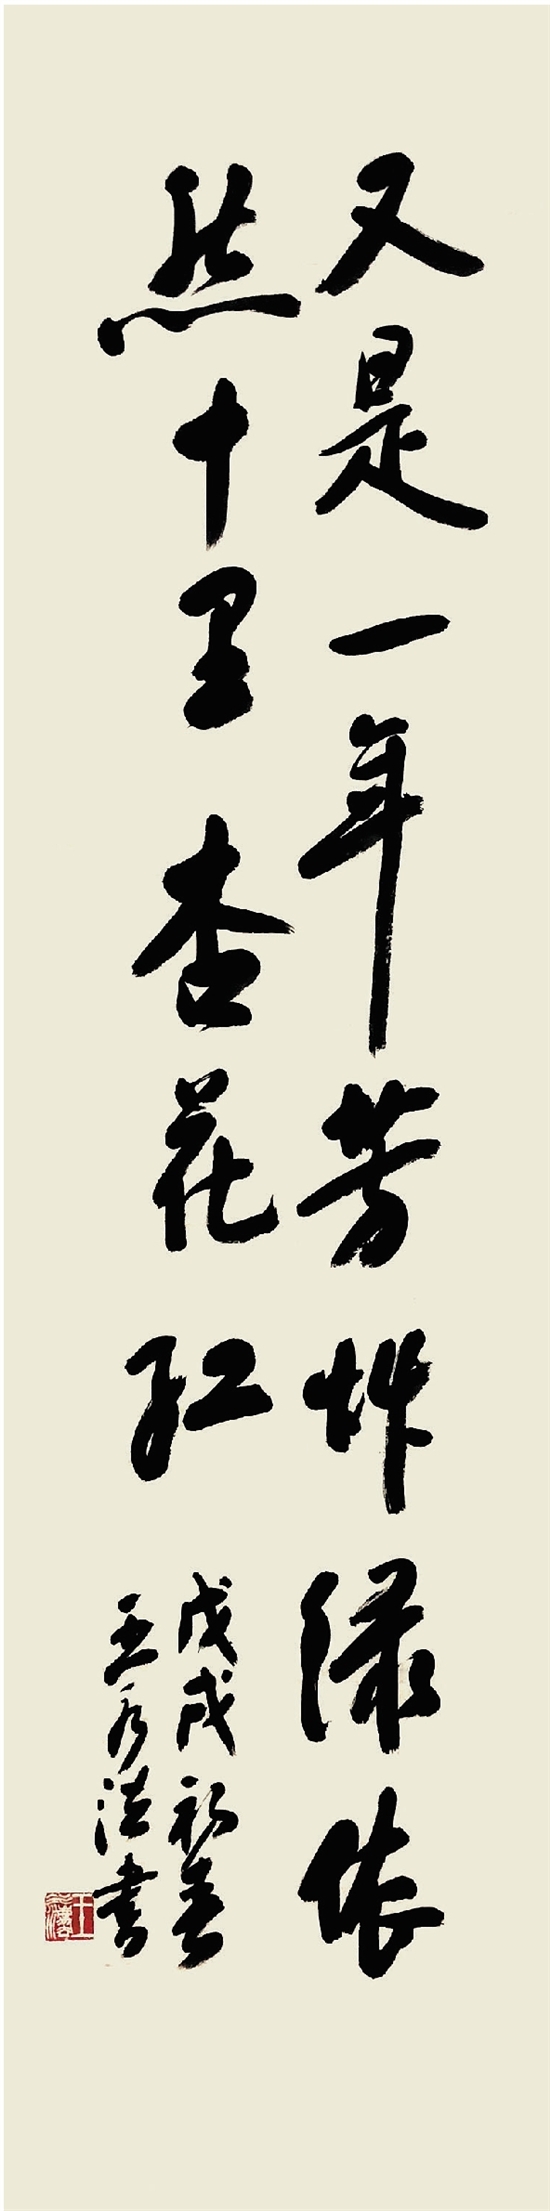 又是一年芳草绿依
然十里杏花红
戊戌初春
王乃法书